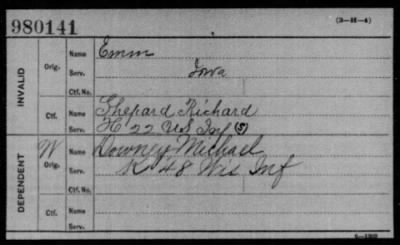 980141
(3—H—4)
INVALID
Orig.
Name
Emm
Serv.
Iowa
Ctf. No.
Ctf.
Name
Shepard Richard
Serv.
H 22 US Inf (S)
DEPENDENT
W
Orig.
Name
Downey Michael
Serv.
K 48 Wis Inf
Ctf. No.
Ctf.
Name
Serv.